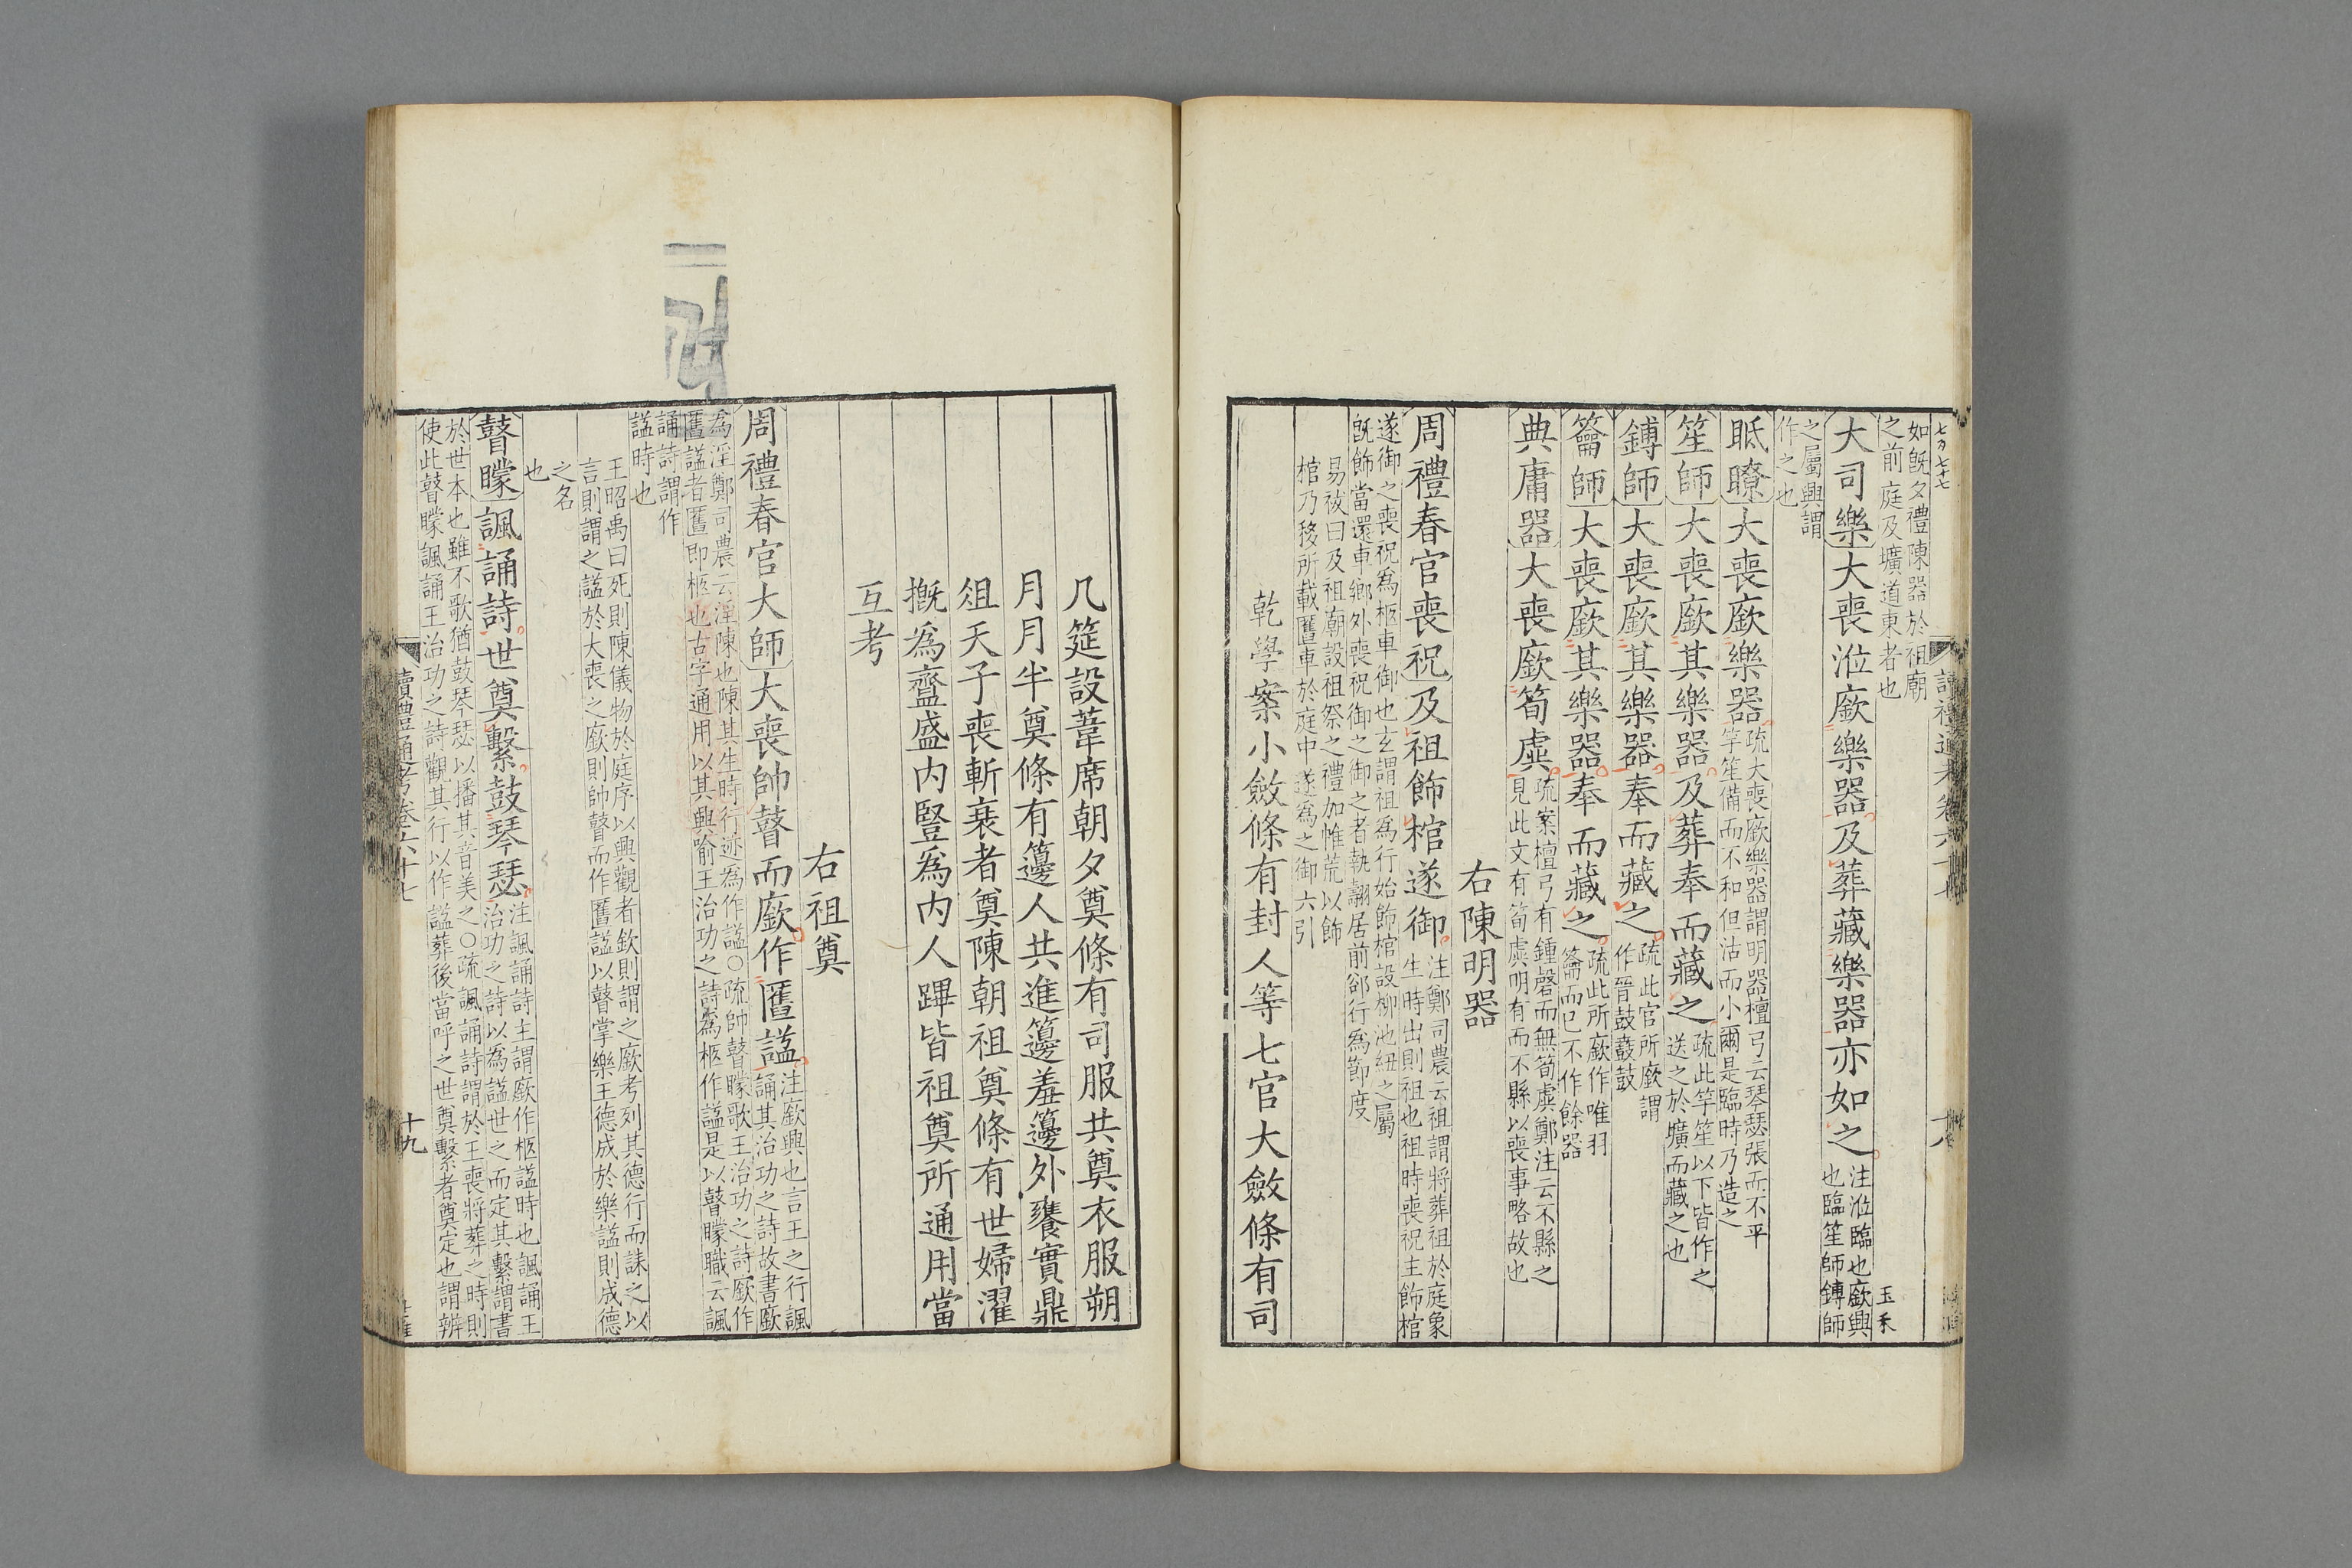 如既夕禮陳器於祖廟
之前庭及壙道東者也
大司樂大喪涖廞樂器及葬藏樂器亦如之注涖臨也廞興
也臨笙師鏄師
之屬興謂
作之也
眡瞭大喪廞樂器疏大喪廞樂器謂明器檀弓云琴瑟張而不平
竽笙備而不和但沽而小爾是臨時乃造之
笙師大喪廞其樂器及葬奉而藏之疏此竽笙以下皆作之
送之於壙而藏之也
鏄師大喪廞其樂器奉而藏之疏此官所廞謂
作晉鼓鼖鼓
籥師大喪廞其樂器奉而藏之疏此所廞作唯羽
籥而已不作餘器
典庸器大喪廞筍虡疏案檀弓有鍾磬而無筍虡鄭注云不縣之
見此文有筍虡明有而不縣以喪事略故也
右陳明器
周禮春官喪祝及祖飾棺遂御注鄭司農云祖謂將葬祖於庭象
生時出則祖也祖時喪祝主飾棺
遂御之喪祝為柩車御也玄謂祖為行始飾棺設柳池紐之屬
既飾當還車鄉外喪祝御之御之者執翿居前郤行為節度
易祓曰及祖廟設祖祭之禮加帷荒以飾
棺乃移所載匶車於庭中遂為之御六引
乾學案小斂條有封人等七官大斂條有司
几筵設葦席朝夕奠條有司服共奠衣服朔
月月半奠條有籩人共進籩羞籩外饔實鼎
俎天子喪斬衰者奠陳朝祖奠條有世婦濯
摡為齍盛內豎為內人蹕皆祖奠所通用當
互考
右祖奠
周禮春官大師大喪帥瞽而廞作匶謚注廞興也言王之行諷
誦其治功之詩故書廞
為淫鄭司農云淫陳也陳其生時行迹為作謚○疏帥瞽矇歌王治功之詩廞作
匶謚者匶即柩也古字通用以其興喻王治功之詩為柩作謚是以瞽矇職云諷
誦詩謂作
謚時也
王昭禹曰死則陳儀物於庭序以興觀者欽則謂之廞考列其德行而誄之以
言則謂之謚於大喪之廞則帥瞽而作匶謚以瞽掌樂王德成於樂謚則成德
之名
也
瞽矇諷誦詩世奠繫鼓琴瑟注諷誦詩主謂廞作柩謚時也諷誦王
治功之詩以為謚世之而定其繫謂書
於世本也雖不歌猶鼓琴瑟以播其音美之○疏諷誦詩謂於王喪將葬之時則
使此瞽矇諷誦王治功之詩觀其行以作謚葬後當呼之世奠繫者奠定也謂辨
讀禮通考卷六十七
十九